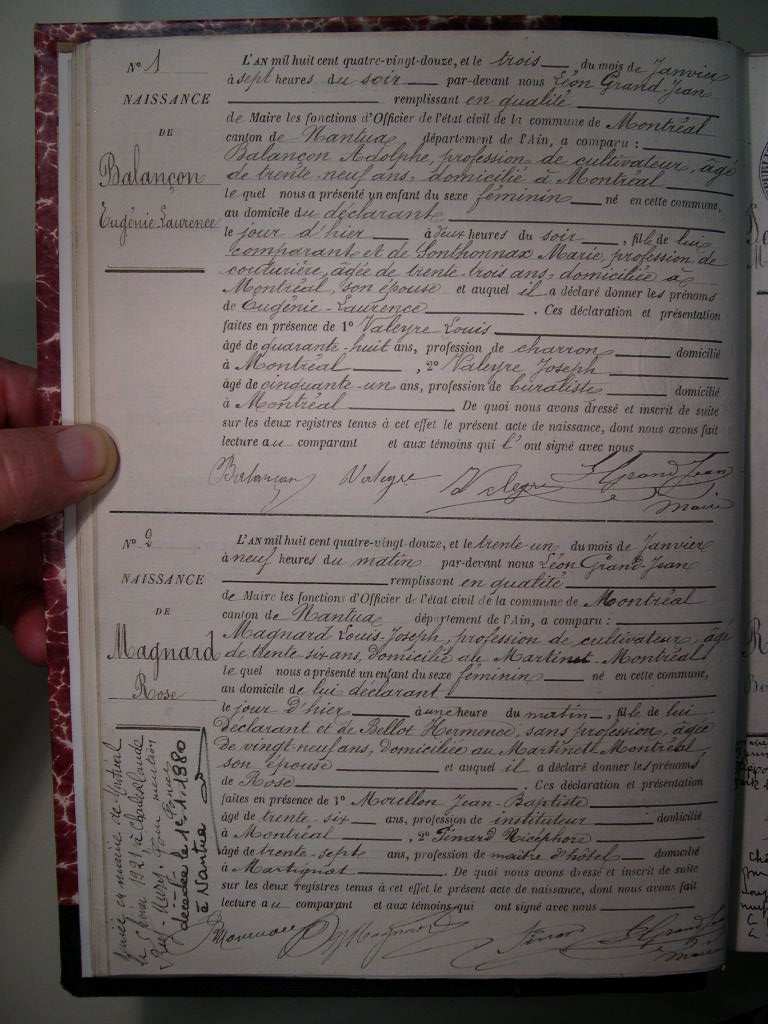 N° 1
NAISSANCE
DE
Balançon
Eugénie-Laurence
L'AN mil huit cent quatre-vingt-douze, et le trois du mois de Janvier
à sept heures du soir par-devant nous Léon Grand-Jean
remplissant en qualité
de Maire les fonctions d'Officier de l'état civil de la commune de Montréal
canton de Nantua département de l'Ain, a comparu :
Balançon Adolphe, profession de cultivateur, âgé
de trente-neuf ans domicilié à Montréal
le quel nous a présenté un enfant du sexe féminin né en cette commune,
au domicile du déclarant
le jour d'hier à deux heures du soir, fille de lui
comparant et de Sonthonnax Marie, profession de
couturière, âgée de trente-trois ans domiciliée à
Montréal, son épouse et auquel il a déclaré donner les prénoms
de Eugénie-Laurence. Ces déclaration et présentation
faites en présence de 1° Valeyre Louis
âgé de quarante-huit ans, profession de charron domicilié
à Montréal, 2° Valeyre Joseph
âgé de cinquante-un ans, profession de buraliste domicilié
à Montréal. De quoi nous avons dressé et inscrit de suite
sur les deux registres tenus à cet effet le présent acte de naissance, dont nous avons fait
lecture au comparant et aux témoins qui l'ont signé avec nous
Balançon Valeyre Valeyre L Grand Jean
Maire
N° 2
NAISSANCE
DE
Magnard
Rose
L'AN mil huit cent quatre-vingt-douze, et le trente-un du mois de Janvier
à neuf heures du matin par-devant nous Léon Grand-Jean
remplissant en qualité
de Maire les fonctions d'Officier de l'état civil de la commune de Montréal
canton de Nantua département de l'Ain, a comparu :
Magnard Louis-Joseph, profession de cultivateur, âgé
de trente-six ans, domicilié au Martinet-Montréal
le quel nous a présenté un enfant du sexe féminin né en cette commune,
au domicile de lui déclarant
le jour d'hier à une heure du matin, fille de lui
déclarant et de Bellot Hermence, sans profession, âgée
de vingt-neuf ans, domiciliée au Martinet Montréal,
son épouse et auquel il a déclaré donner les prénoms
de Rose. Ces déclaration et présentation
faites en présence de 1° Morellon Jean-Baptiste
âgé de trente-six ans, profession de instituteur domicilié
à Montréal, 2° Pinard Nicéphore
âgé de trente-sept ans, profession de maître d'hôtel domicilié
à Martignat. De quoi nous avons dressé et inscrit de suite
sur les deux registres tenus à cet effet le présent acte de naissance, dont nous avons fait
lecture au comparant et aux témoins qui ont signé avec nous
Magnard Pinard L Grand Jean
Maire
en mairie de Montréal
le 1921 à
décédée le 1er.1.1980
à Nantua